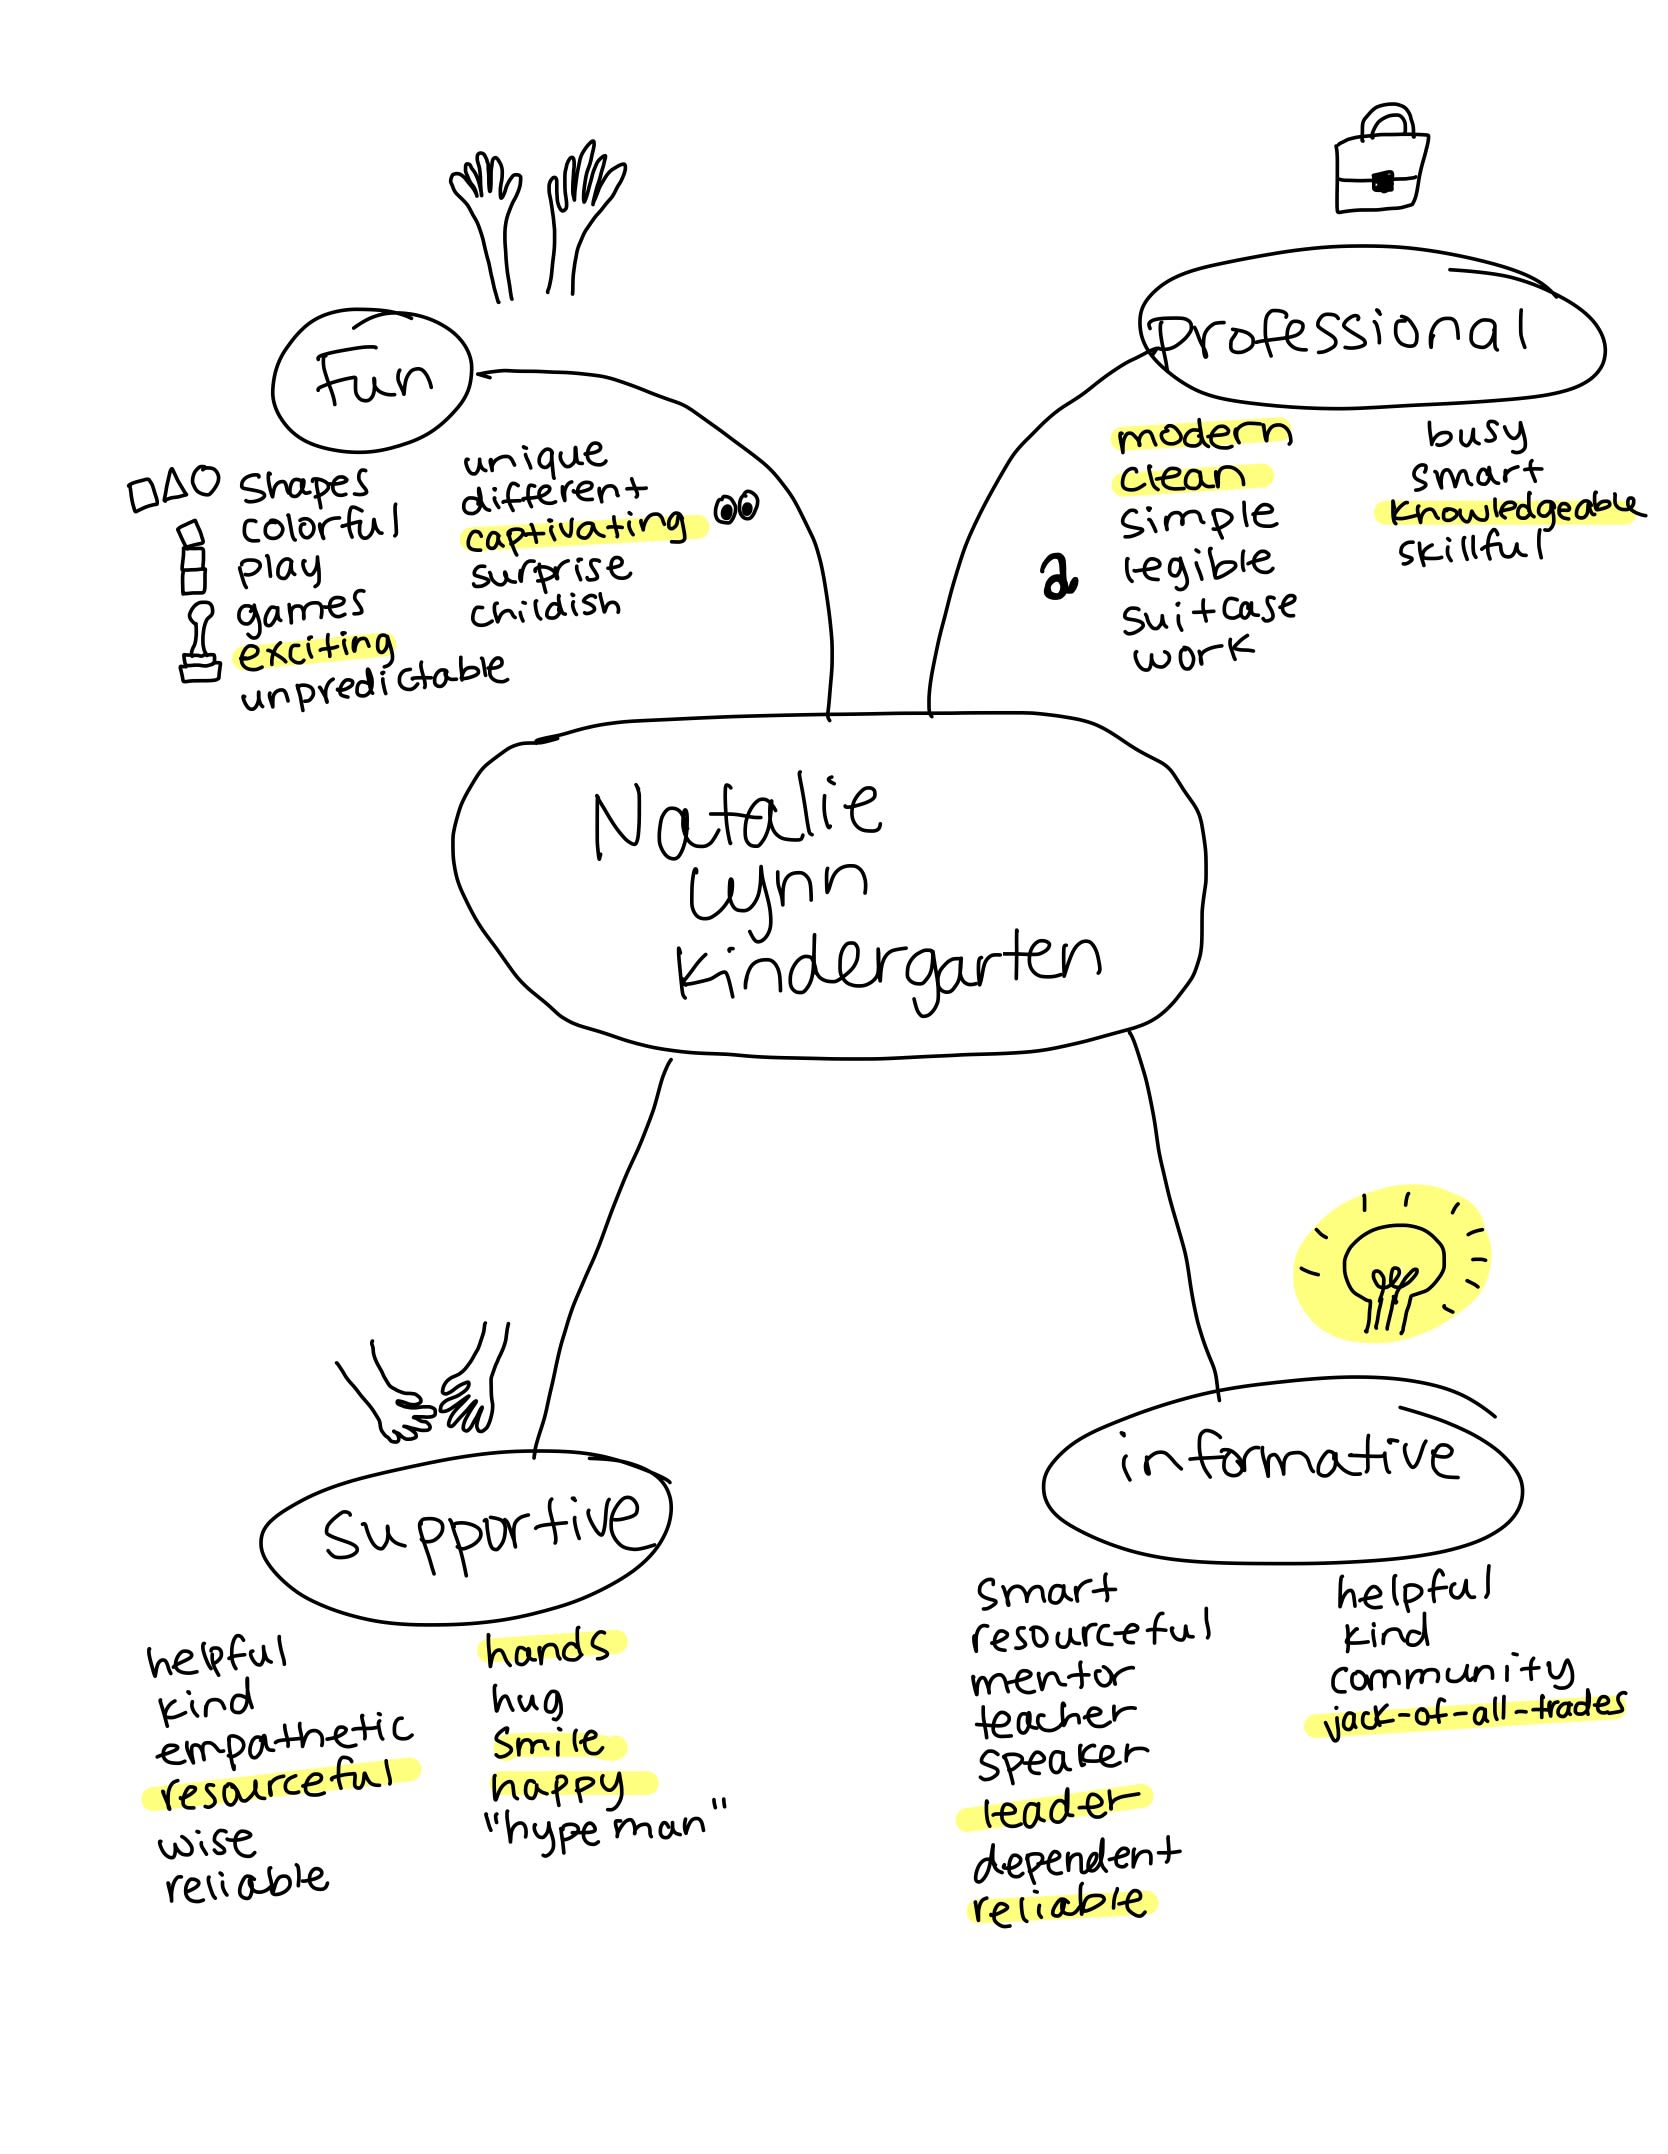 Fun
shapes
colorful
play
games
exciting
unpredictable
unique
different
captivating
surprise
childish
professional
modern
clean
simple
legible
suitcase
work
busy
smart
knowledgeable
skillful
a
Natalie
Lynn
Kindergarten
supportive
helpful
kind
empathetic
resourceful
wise
reliable
hands
hug
smile
happy
"hype man"
informative
smart
resourceful
mentor
teacher
speaker
leader
dependent
reliable
helpful
kind
community
jack-of-all-trades